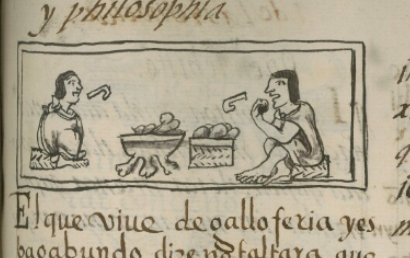 y philosophia
El que viue de gallo feria yes
bagabundo dize faltara que